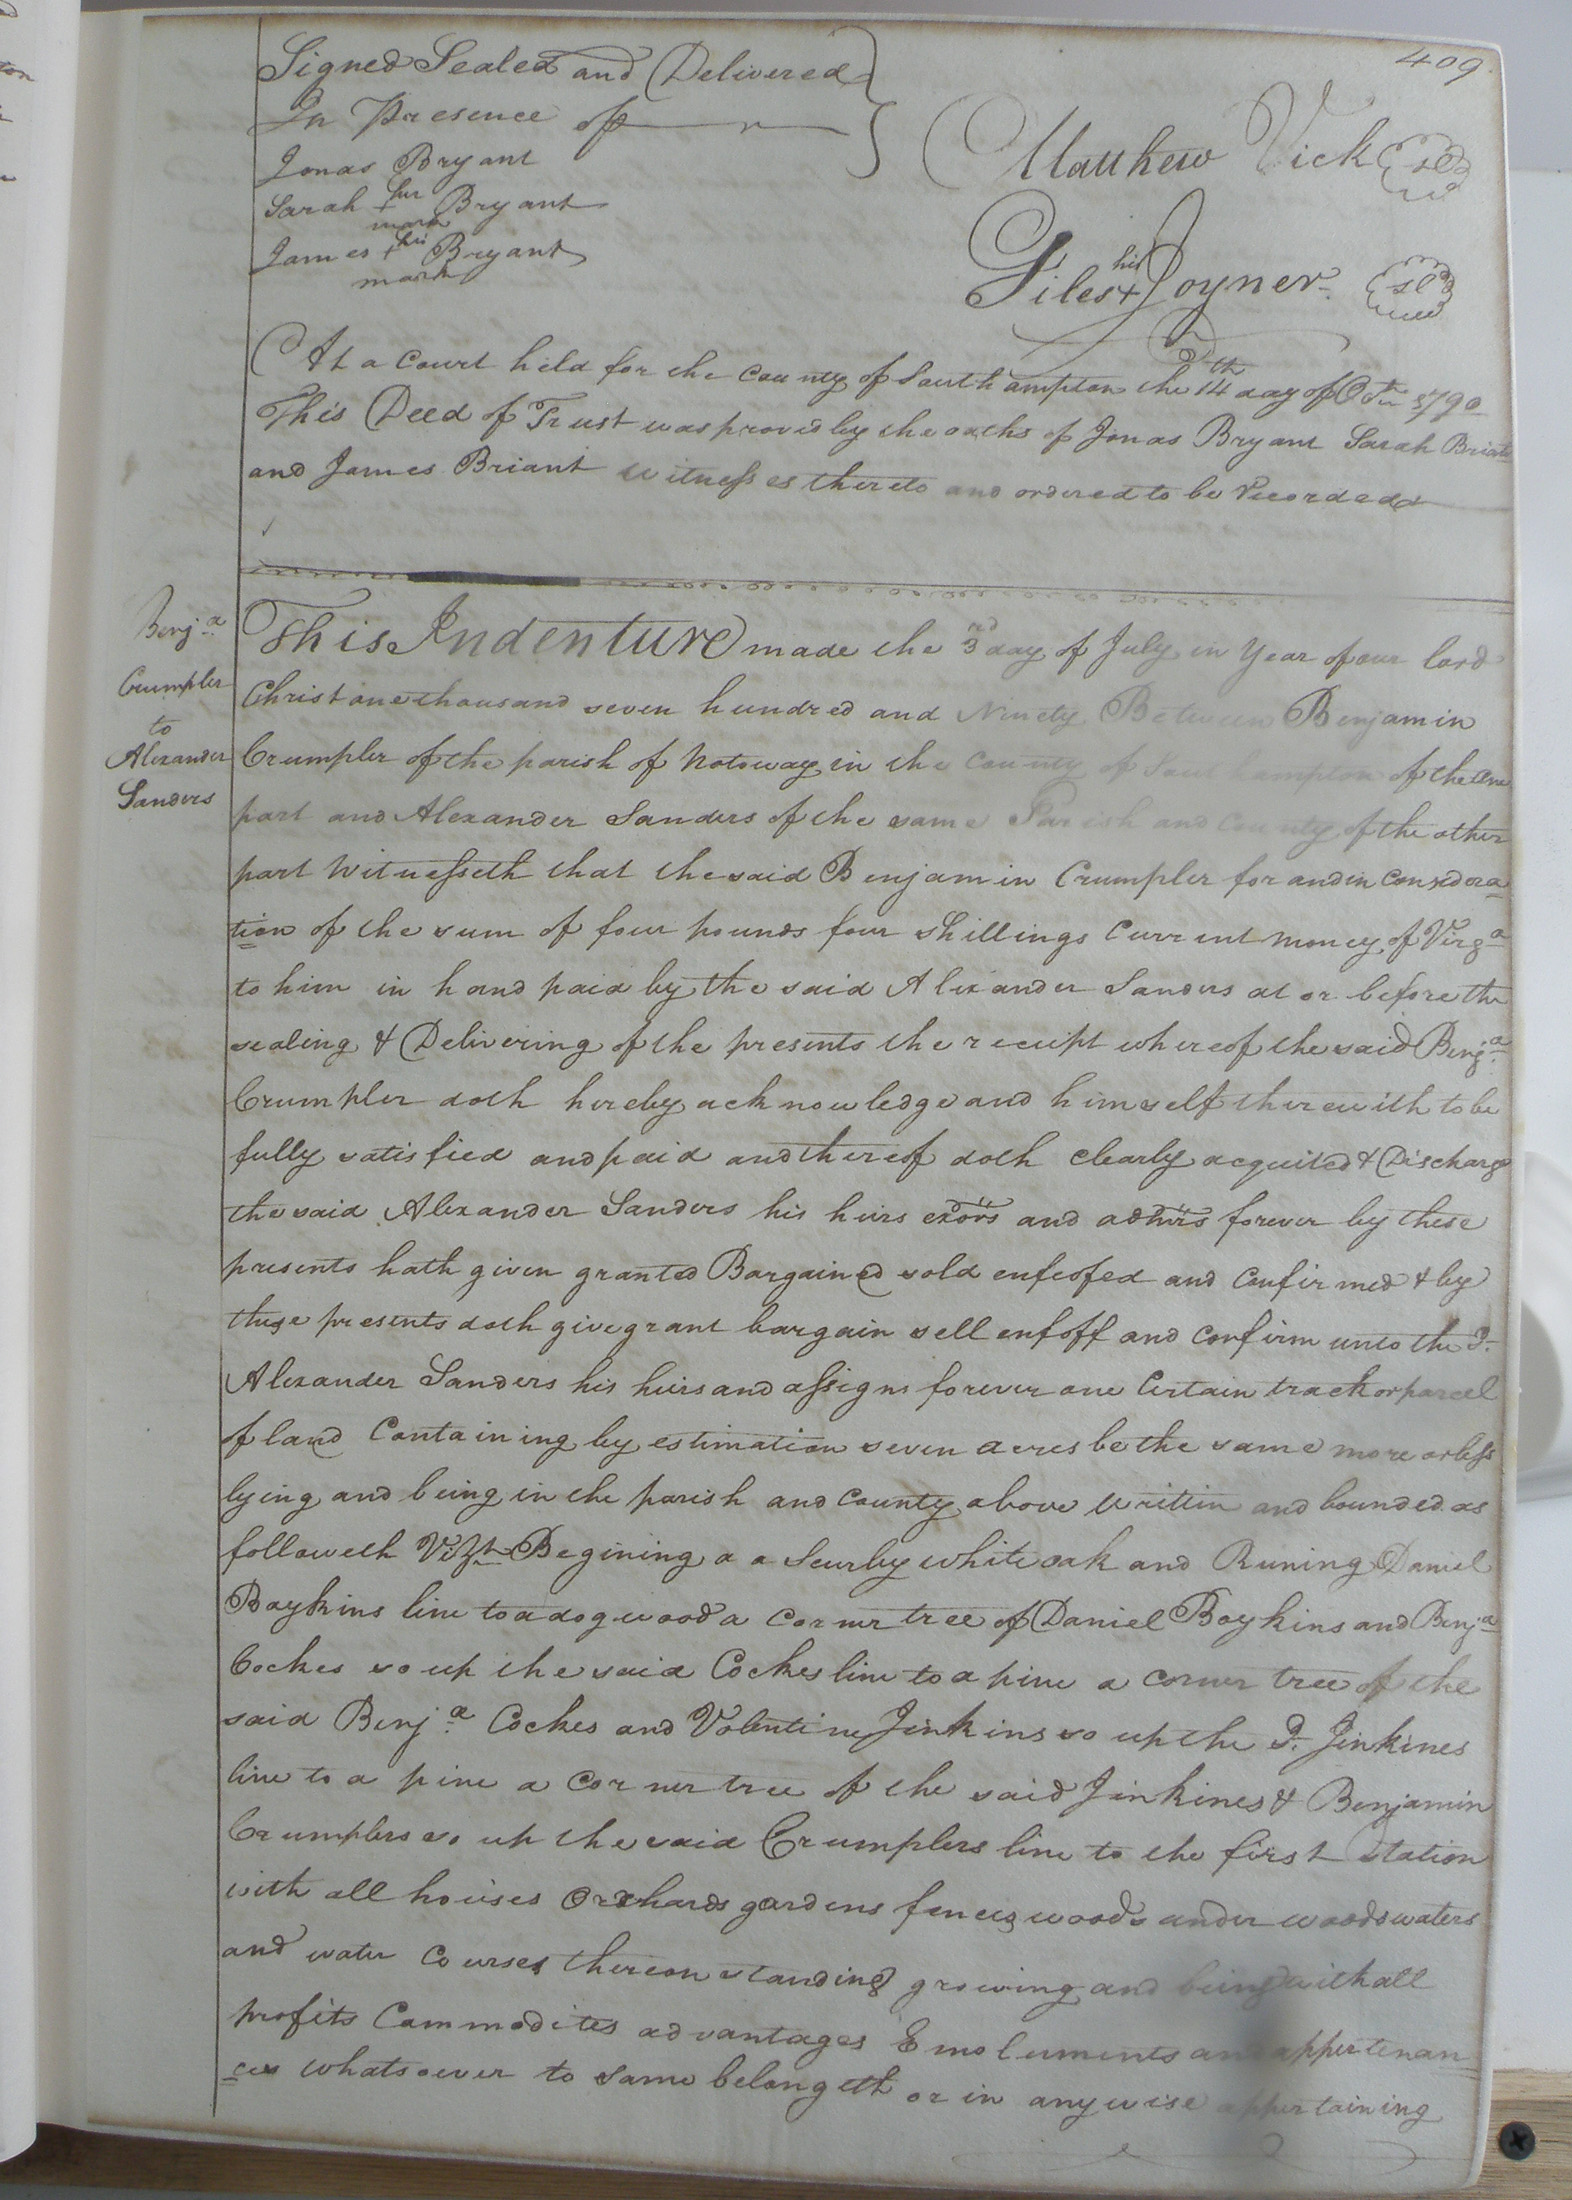 409
Signed Sealed and Delivered
In Presence of
Jonas Bryant
Sarah her + mark Bryant
James his + mark Bryant
Matthew Vick sld
Giles his + Joyner sld
At a Court held for the County of Southampton the 14th day of Octr 1790
This Deed of Trust was proved by the oaths of Jonas Bryant Sarah Briant
and James Briant witnesses thereto and ordered to be Recorded
Benja
Crumpler
to
Alexander
Sanders
This Indenture made the 3rd day of July in Year of our lord
Christ one thousand seven hundred and Ninety Between Benjamin
Crumpler of the parish of Notoway in the County of Southampton of the one
part and Alexander Sanders of the same Parish and County of the other
part Witnesseth that the said Benjamin Crumpler for and in Considera
tion of the sum of four pounds four shillings Current money of Virga
to him in hand paid by the said Alexander Sanders at or before the
sealing & Delivering of the presents the receipt whereof the said Benja
Crumpler doth hereby acknowledge and himself therewith to be
fully satisfied and paid and thereof doth clearly acquited & Discharge
the said Alexander Sanders his heirs exors and admrs forever by these
presents hath given granted Bargained sold enfeofed and Confirmed & by
these presents doth give grant bargain sell enfoff and confirm unto the Sd.
Alexander Sanders his heirs and assigns forever one Certain track or parcel
of land Containing by estimation seven acres be the same more or less
lying and being in the parish and County above written and bounded as
followeth Vizt Begining a a Scurby white oak and Runing Daniel
Boykins line to a dogwood a corner tree of Daniel Boykins and Benja
Cockes so up the said Cockes line to a pine a corner tree of the
said Benja Cockes and Volentine Jinkins so up the Sd. Jinkines
line to a pine a Corner tree of the said Jinkines & Benjamin
Crumplers so up the said Crumplers line to the first station
with all houses Orchards gardens fences woods under woods waters
and water Courses thereon standing growing and being with all
profits Commodites advantages Emoluments and appertenan
ces whatsoever to same belongeth or in anywise appertaining